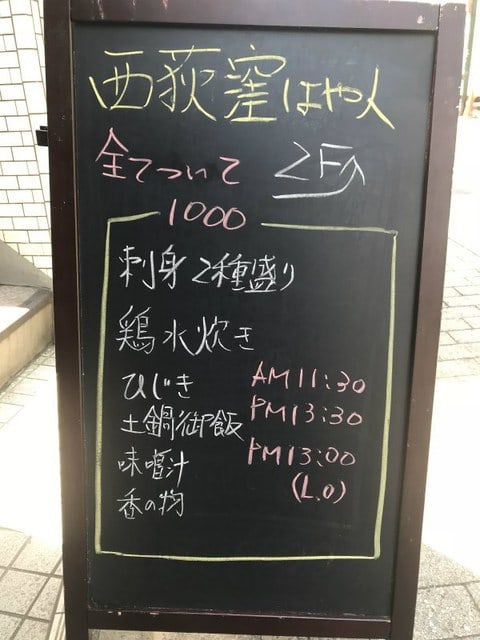 西荻窪 はや人
全てついて 2Fへ
1000
刺身 2種盛り
鶏水炊き
ひじき AM11:30
土鍋御飯 PM13:30
味噌汁 PM13:00
香の物 (L.O)